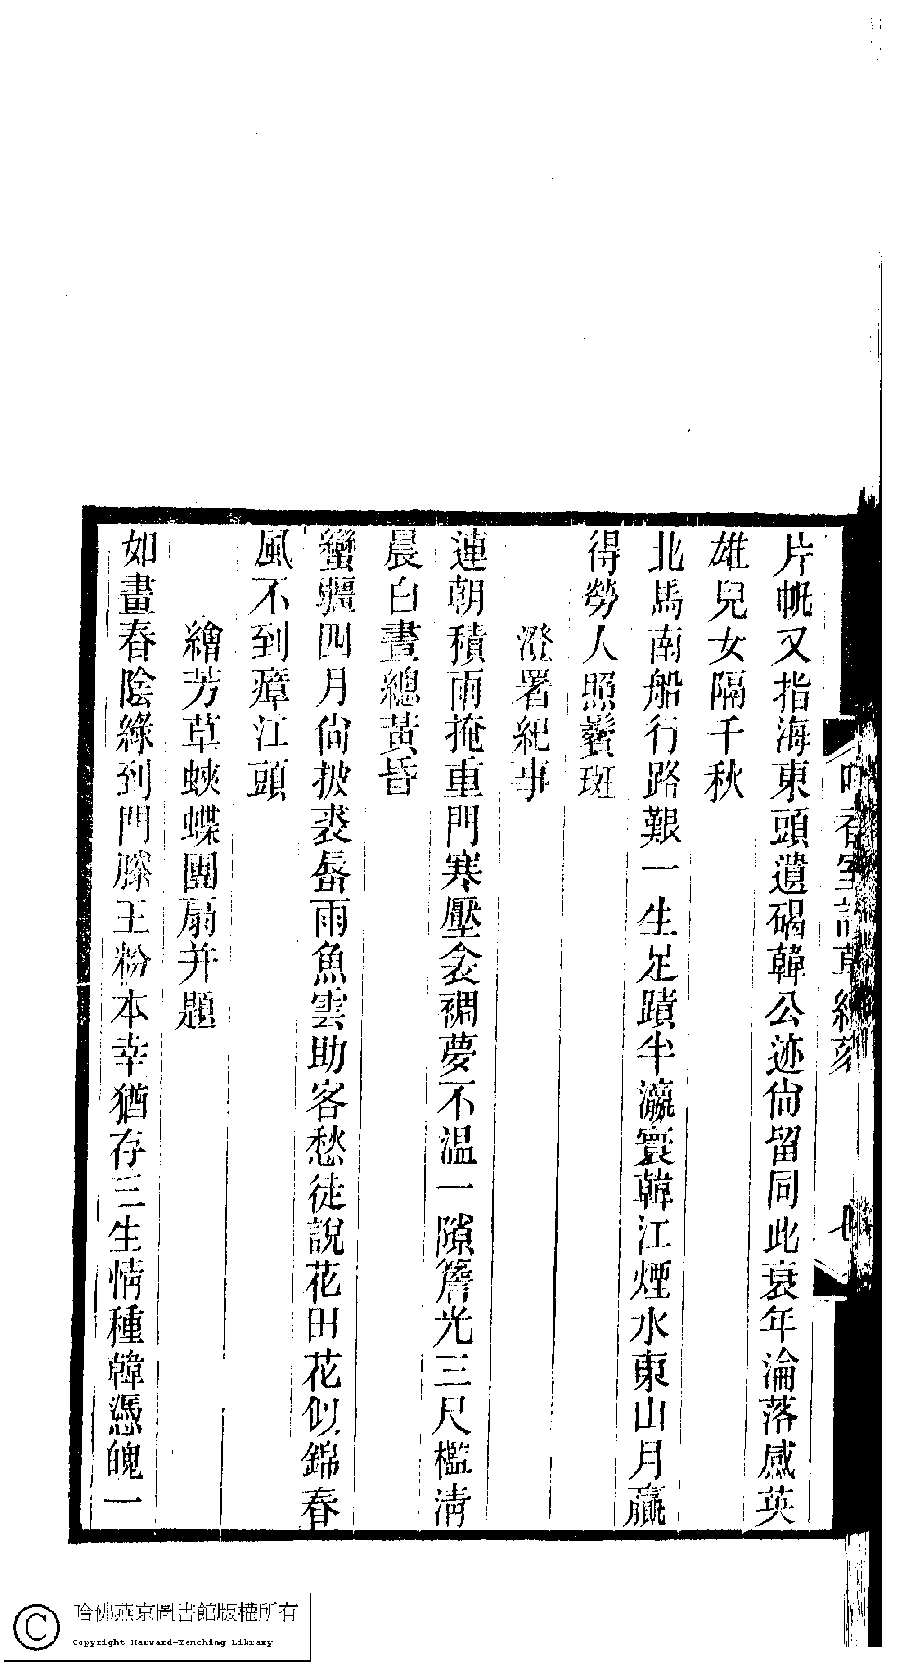 片帆又指海東頭遺碣韓公迹尙留同此衰年淪落感英
雄兒女隔千秋
北馬南船行路艱一生足蹟半瀛寰韓江煙水東山月贏
得勞人照鬢斑
澄署紀事
連朝積雨掩重門寒壓衾裯夢不温一隙簷光三尺檻淸
晨白晝總黃昏
蠻疆四月尙披裘蜃雨魚雲助客愁徒說花田花似錦春
風不到瘴江頭
繪芳草蛺蝶團扇并題
如畫春陰綠到門滕王粉本幸猶存三生情種韓憑魄一
哈佛燕京圖書館版權所有
Copyright Harvard-Yenching Library